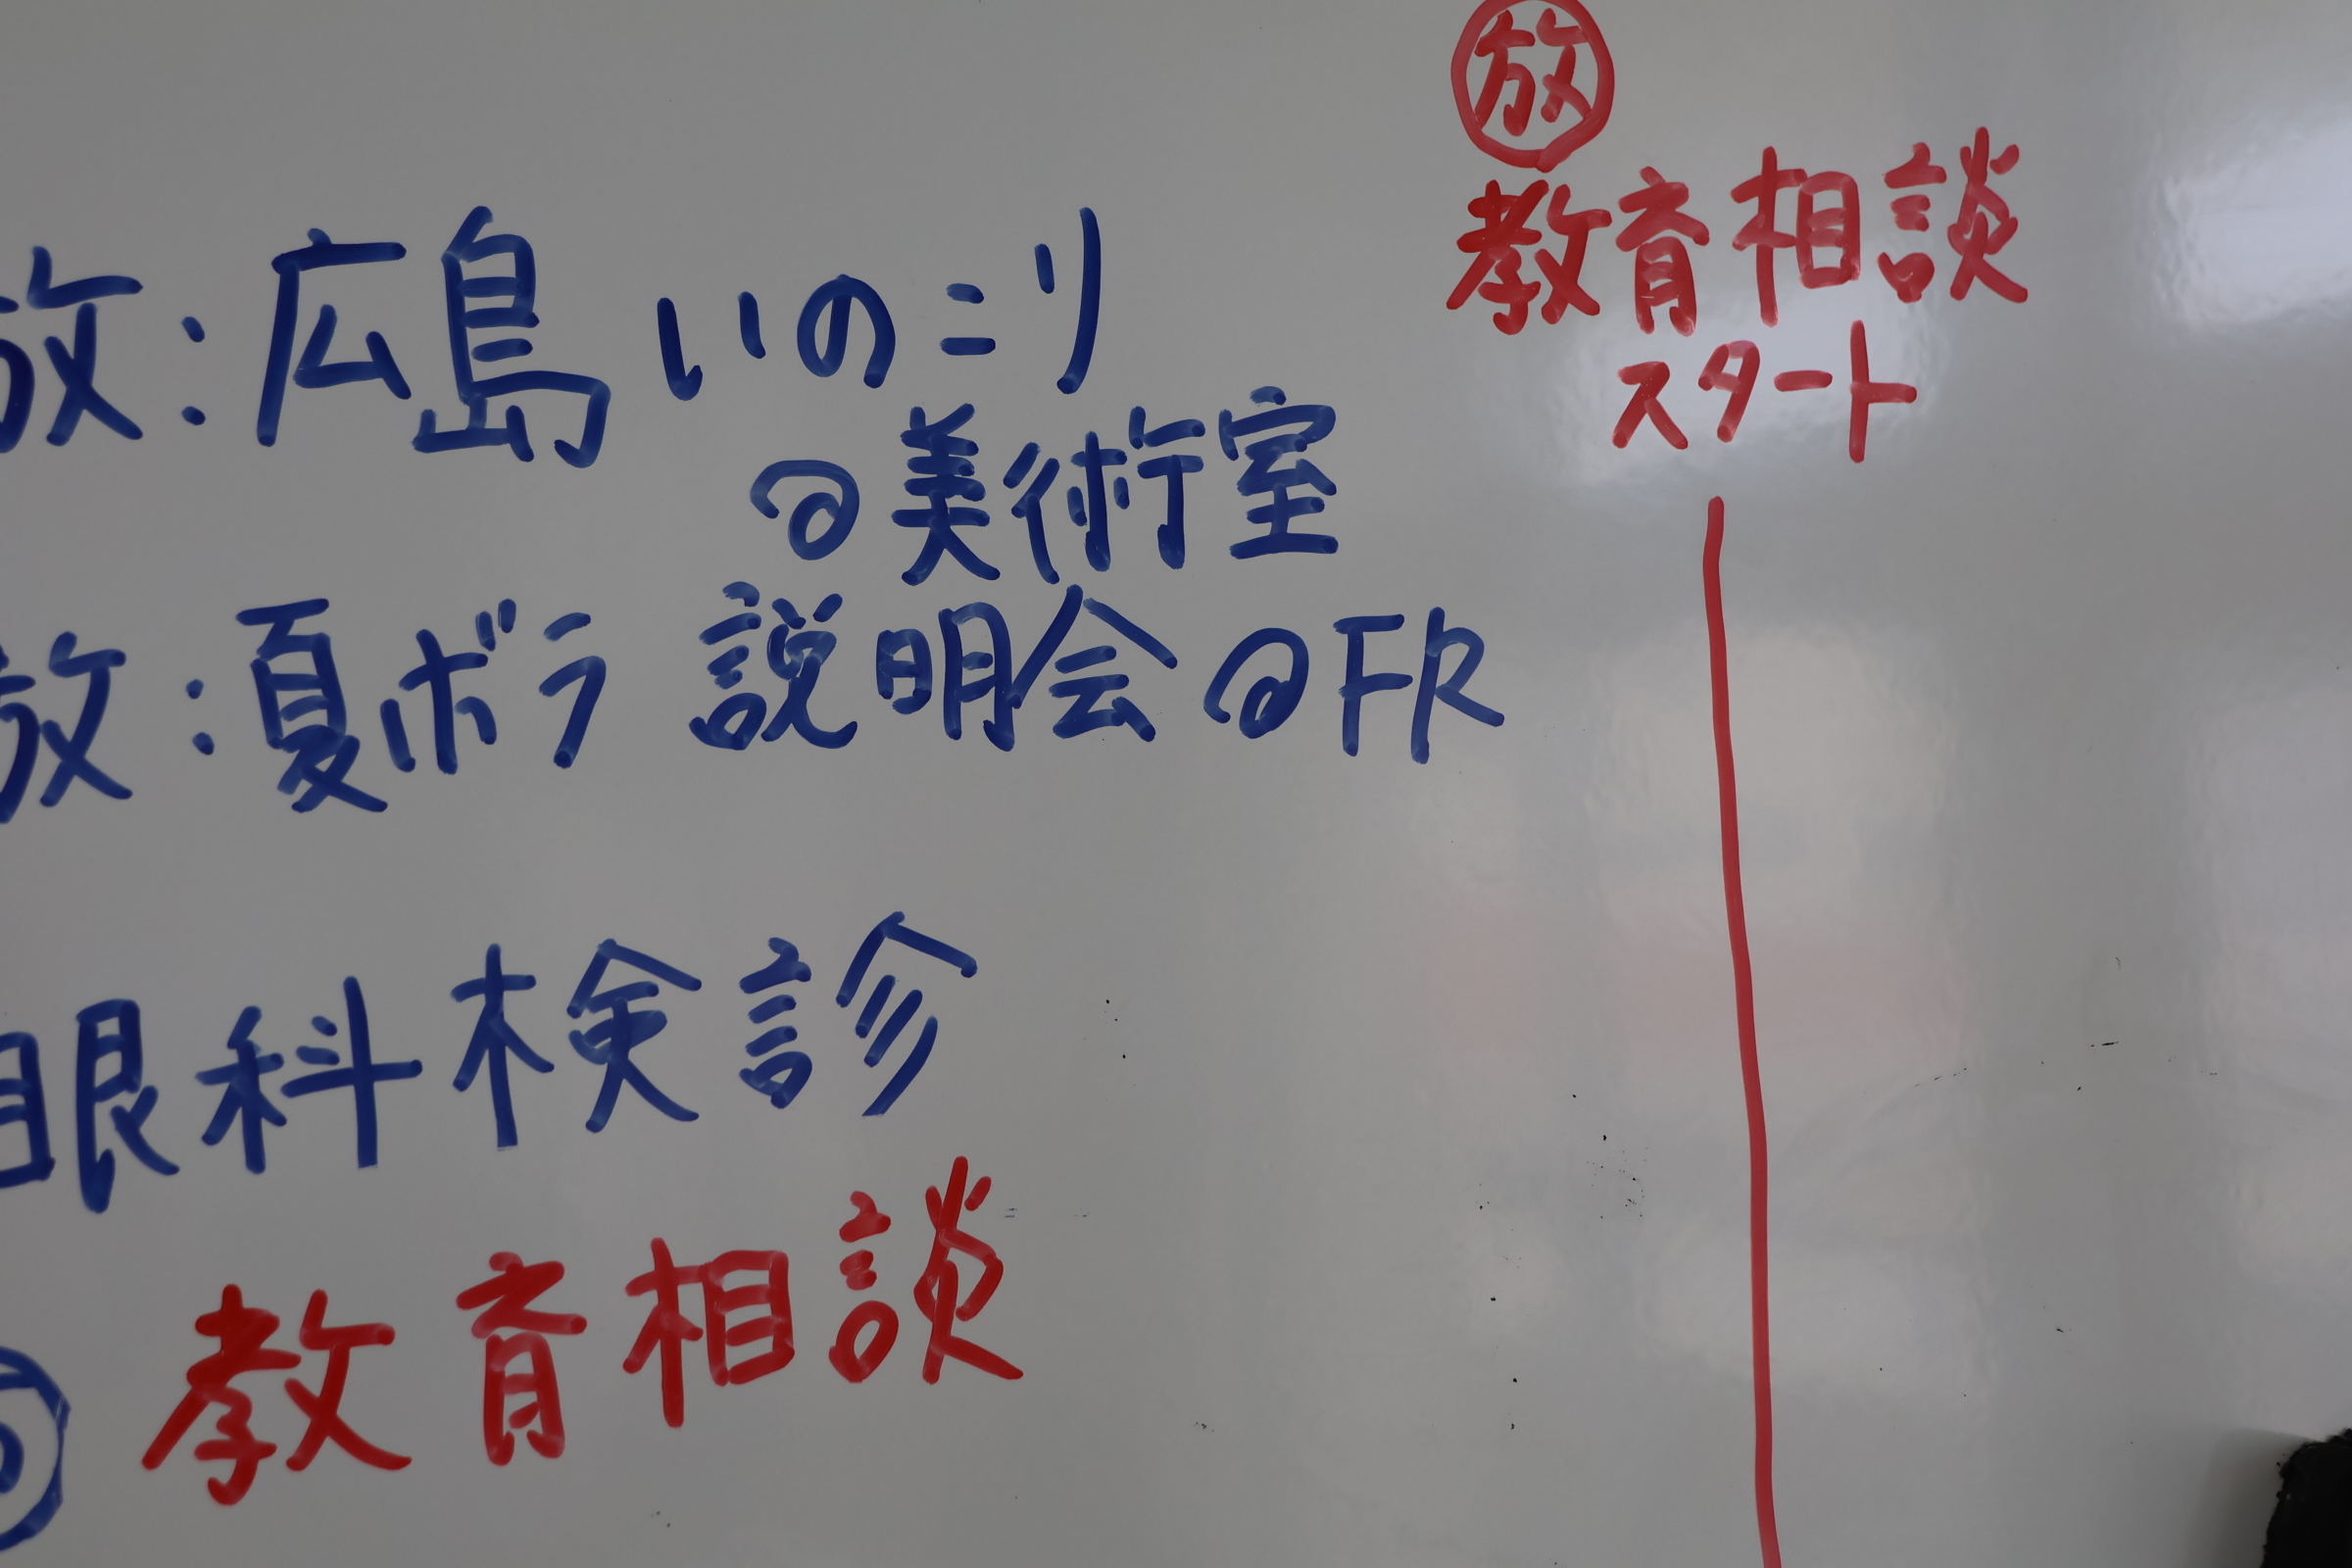 放:広島 いのこり
@美術室
放:夏ボラ 説明会 @FR
眼科検診
教育相談
放
教育相談
スタート